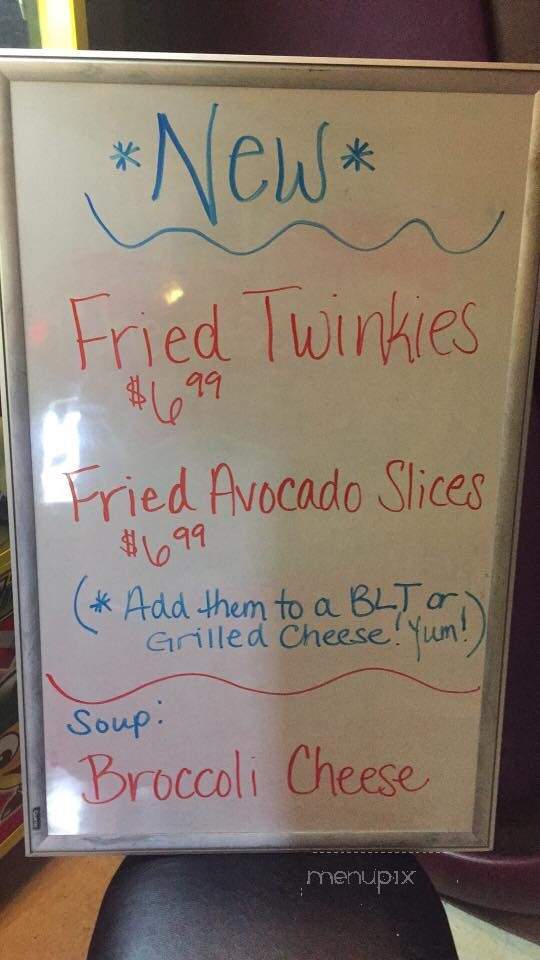 *New*
Fried Twinkies
$6.99
Fried Avocado Slices
$6.99
(* Add them to a BLT or
Grilled Cheese! Yum!)
Soup:
Broccoli Cheese
menupix